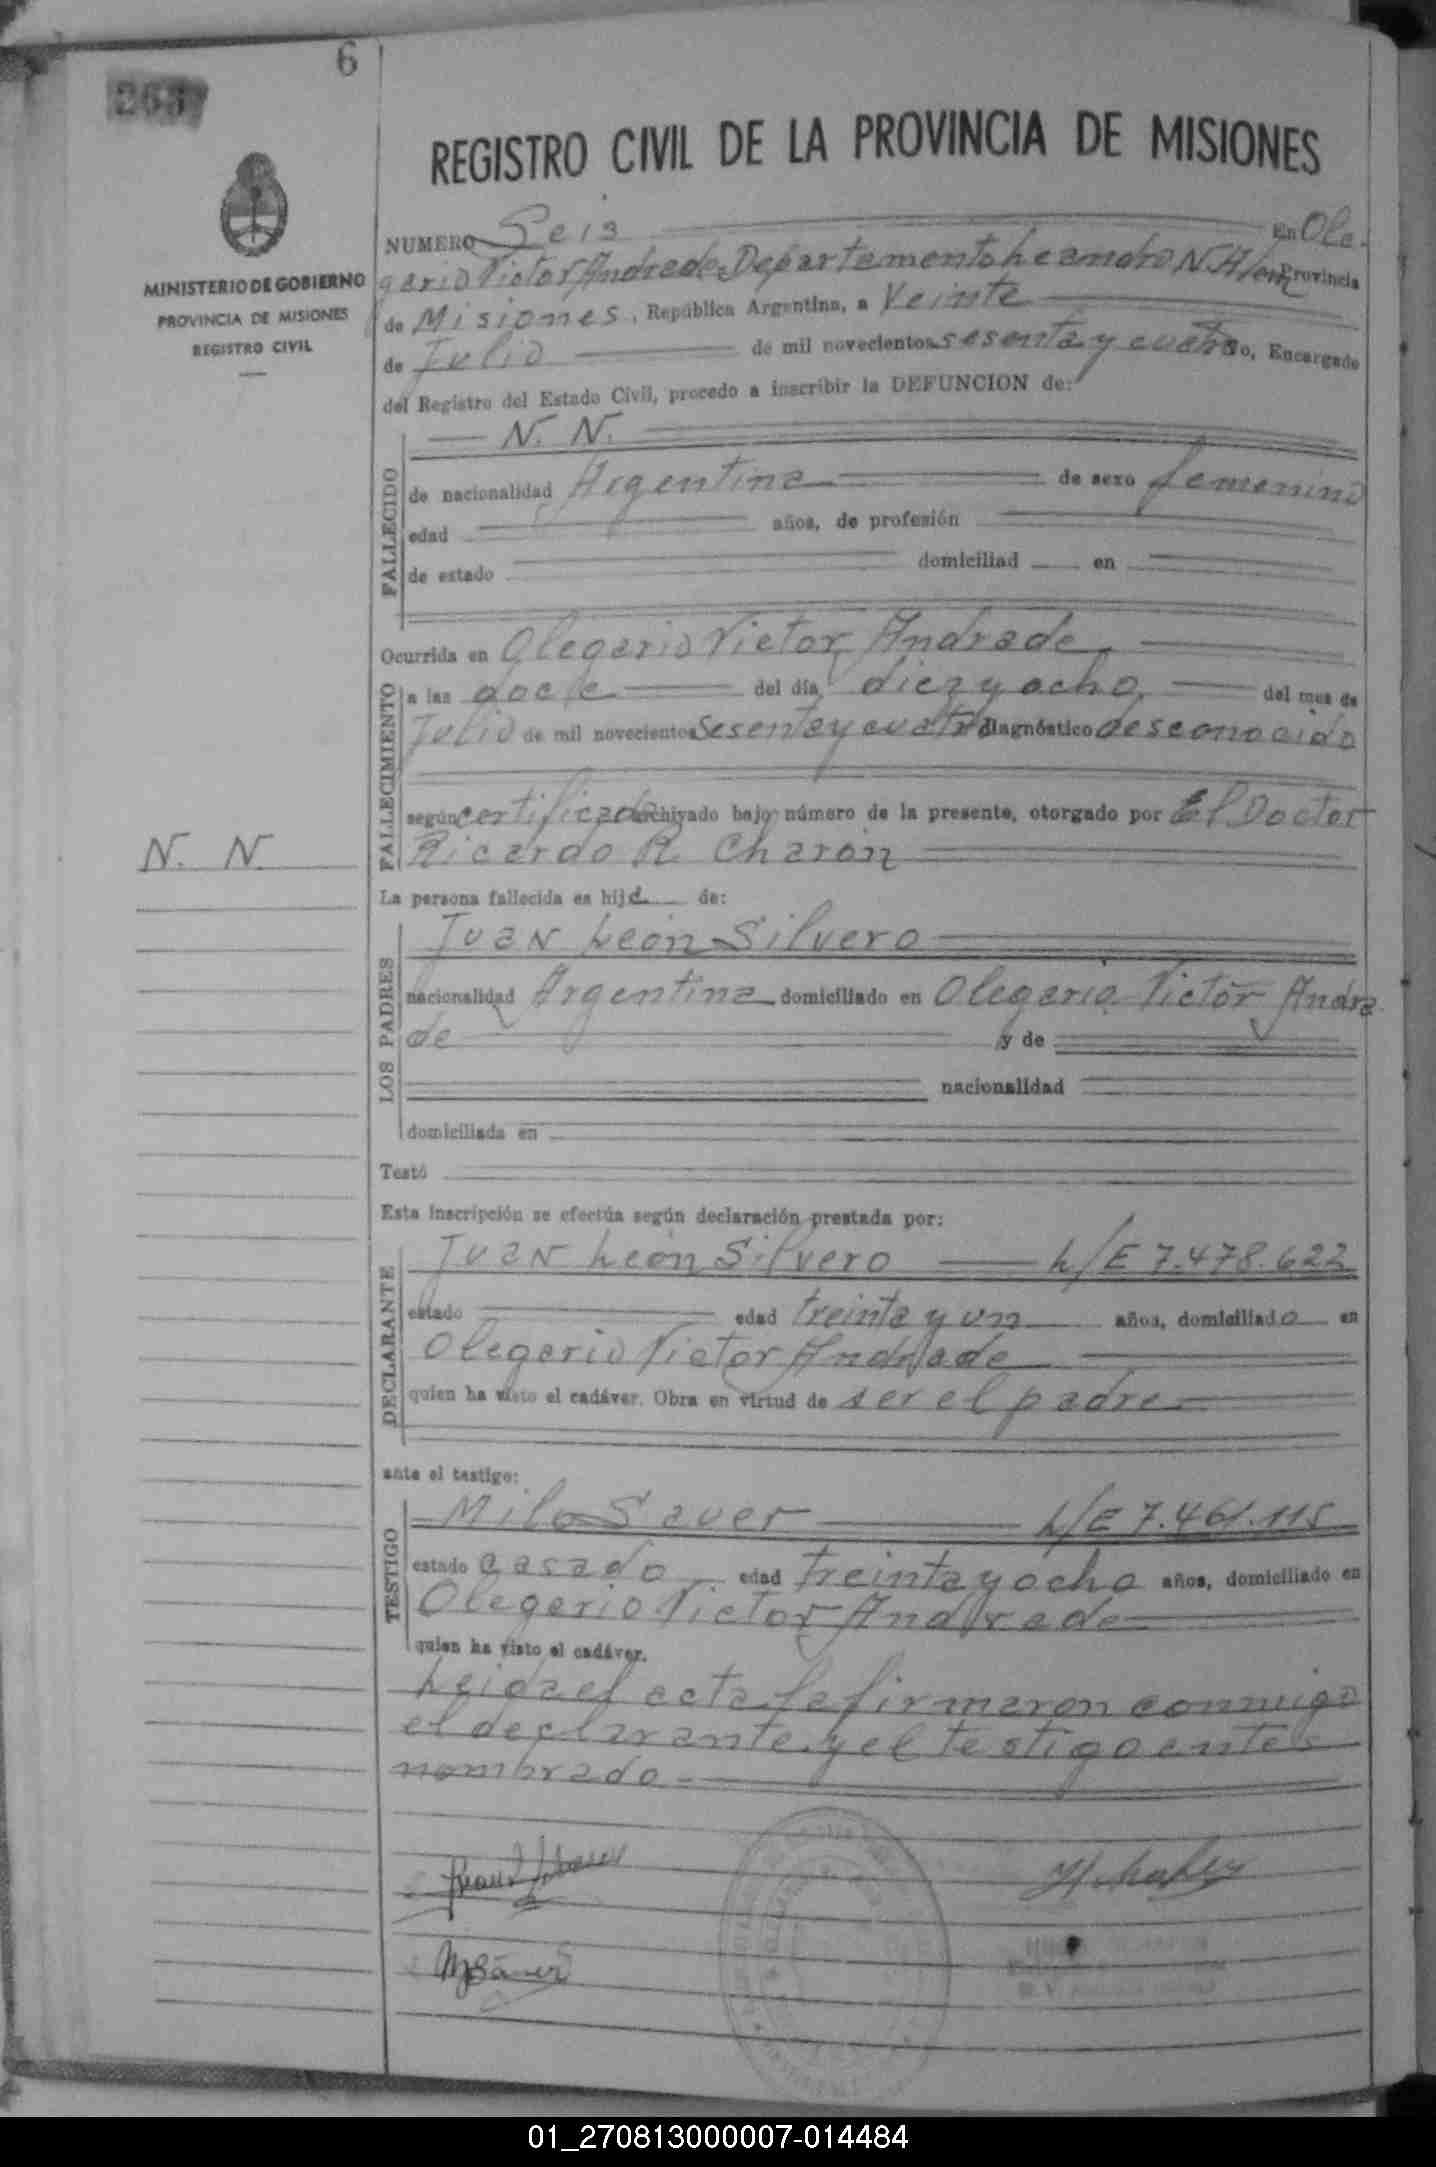 6
263
MINISTERIO DE GOBIERNO
PROVINCIA DE MISIONES
REGISTRO CIVIL
N. N.
REGISTRO CIVIL DE LA PROVINCIA DE MISIONES
NUMERO Seis En Ole-
gario Victor Andrade, Departamento Leandro N. Alem Provincia
de Misiones, República Argentina, a Veinte
de Julio de mil novecientos sesenta y cuatro, Encargado
del Registro del Estado Civil, procedo a inscribir la DEFUNCION de:
FALLECIDO
N. N.
de nacionalidad Argentina de sexo femenino
edad años, de profesión
de estado domiciliad en
Ocurrida en Olegario Victor Andrade.
FALLECIMIENTO
a las doce del día diez y ocho del mes de
Julio de mil novecientos sesenta y cuatro diagnóstico desconocido
según certificado archivado bajo número de la presente, otorgado por El Doctor
Ricardo R. Charón
La persona fallecida es hija de:
LOS PADRES
Juan León Silvero
nacionalidad Argentina domiciliado en Olegario Victor Andra
de y de
nacionalidad
domiciliada en
Testó
Esta inscripción se efectúa según declaración prestada por:
DECLARANTE
Juan León Silvero L/E 7.478.622
estado edad treinta y un años, domiciliado en
Olegario Victor Andrade
quien ha visto el cadáver. Obra en virtud de ser el padre
ante el testigo:
TESTIGO
Milo Sauer L/E 7.461.115
estado casado edad treinta y ocho años, domiciliado en
Olegario Victor Andrade
quien ha visto el cadáver.
Leida el acta la firmaron conmigo
el declarante y el testigo antes
nombrado
01_270813000007-014484